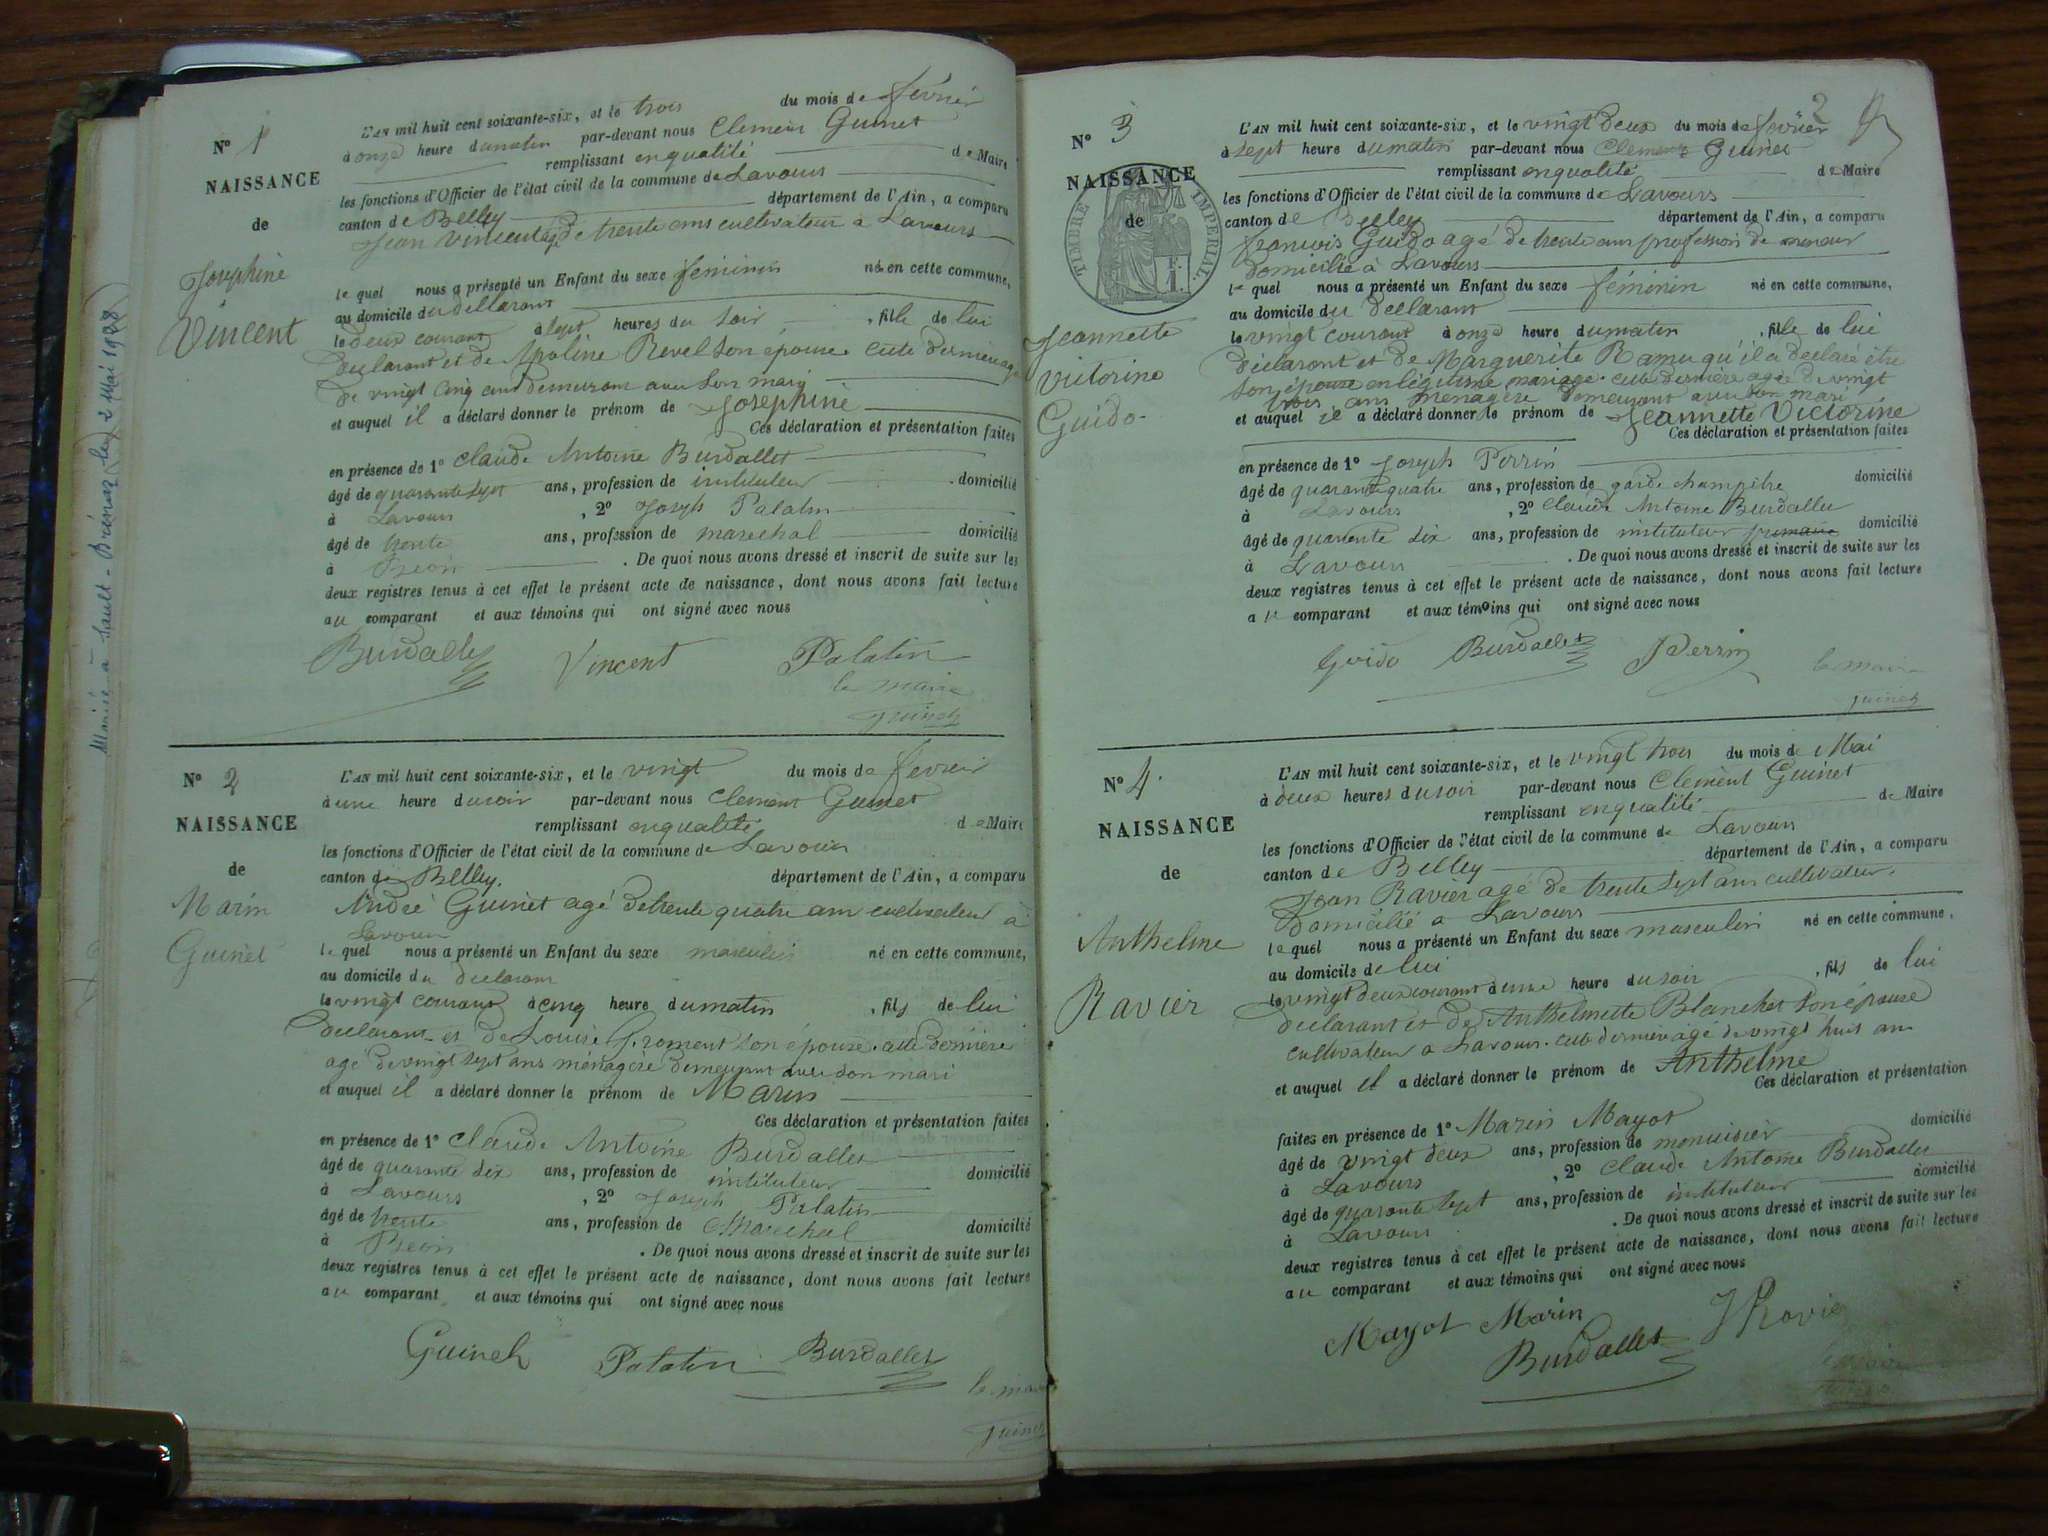 Mariée à Sault-Brénaz le 2 Mai 1988
N° 1
NAISSANCE
de
Josephine
Vincent
L'AN mil huit cent soixante-six, et le trois du mois de février
à onze heure du matin par-devant nous Clement Guinet
remplissant en qualité de Maire
les fonctions d'Officier de l'état civil de la commune de Lavours
canton de Belley département de l'Ain, a comparu
Jean Vincent agé de trente ans cultivateur à Lavours
le quel nous a présenté un Enfant du sexe feminin né en cette commune,
au domicile du déclarant
le deux courant à sept heures du soir, fille de lui
déclarant et de Apoline Revel son épouse. cette dernière agé
de vingt cinq ans demeurant avec son mari
et auquel il a déclaré donner le prénom de Josephine
Ces déclaration et présentation faites
en présence de 1° Claude Antoine Burdallet
âgé de quarante sept ans, profession de instituteur domicilié
à Lavours, 2° Joseph Palatin
âgé de trente ans, profession de marechal domicilié
à Béon. De quoi nous avons dressé et inscrit de suite sur les
deux registres tenus à cet effet le présent acte de naissance, dont nous avons fait lecture
au comparant et aux témoins qui ont signé avec nous
Burdallet Vincent Palatin
le maire
Guinet
N° 2
NAISSANCE
de
Marin
Guinet
L'AN mil huit cent soixante-six, et le vingt du mois de fevrier
à une heure du soir par-devant nous Clement Guinet
remplissant en qualité de Maire
les fonctions d'Officier de l'état civil de la commune de Lavours
canton de Belley. département de l'Ain, a comparu
André Guinet agé de trente quatre ans cultivateur à
Lavours
le quel nous a présenté un Enfant du sexe masculin né en cette commune,
au domicile du déclarant
le vingt courant à cinq heure du matin, fils de lui
déclarant et de Louise Froment son épouse. cette dernière
agé de vingt sept ans ménagère demeurant avec son mari
et auquel il a déclaré donner le prénom de Marin
Ces déclaration et présentation faites
en présence de 1° Claude Antoine Burdallet
âgé de quarante six ans, profession de instituteur domicilié
à Lavours, 2° Joseph Palatin
âgé de trente ans, profession de Marechal domicilié
à Béon. De quoi nous avons dressé et inscrit de suite sur les
deux registres tenus à cet effet le présent acte de naissance, dont nous avons fait lecture
au comparant et aux témoins qui ont signé avec nous
Guinet Palatin Burdallet
le maire
Guinet
2
N° 3
NAISSANCE
de
TIMBRE IMPERIAL
Jeannette
Victorine
Guido
L'AN mil huit cent soixante-six, et le vingt deux du mois de fevrier
à sept heure du matin par-devant nous Clement Guinet
remplissant en qualité de Maire
les fonctions d'Officier de l'état civil de la commune de Lavours
canton de Belley département de l'Ain, a comparu
françois Guido agé de trente ans profession de mineur
domicilié à Lavours
le quel nous a présenté un Enfant du sexe féminin né en cette commune,
au domicile du déclarant
le vingt courant à onze heure du matin, fille de lui
déclarant et de Marguerite Ramu qu'il a declaré être
son épouse en légitime mariage. cette dernière agée de vingt
trois ans ménagère demeurant avec son mari
et auquel il a déclaré donner le prénom de Jeannette Victorine
Ces déclaration et présentation faites
en présence de 1° Joseph Perrin
âgé de quarante quatre ans, profession de garde champêtre domicilié
à Lavours, 2° Claude Antoine Burdallet
âgé de quarante six ans, profession de instituteur primaire domicilié
à Lavours. De quoi nous avons dressé et inscrit de suite sur les
deux registres tenus à cet effet le présent acte de naissance, dont nous avons fait lecture
au comparant et aux témoins qui ont signé avec nous
Guido Burdallet J Perrin
le maire
Guinet
N° 4
NAISSANCE
de
Anthelme
Ravier
L'AN mil huit cent soixante-six, et le vingt trois du mois de Mai
à deux heures du soir par-devant nous Clement Guinet
remplissant en qualité de Maire
les fonctions d'Officier de l'état civil de la commune de Lavours
canton de Belley département de l'Ain, a comparu
Jean Ravier agé de trente sept ans cultivateur.
domicilié à Lavours
le quel nous a présenté un Enfant du sexe masculin né en cette commune,
au domicile de lui
le vingt deux courant à une heure du soir, fils de lui
déclarant et de Anthelmette Blanchet son épouse
cultivateur à Lavours. cette dernière agé de vingt huit ans
et auquel il a déclaré donner le prénom de Anthelme
Ces déclaration et présentation
faites en présence de 1° Marin Mayot
âgé de vingt deux ans, profession de menuisier domicilié
à Lavours, 2° Claude Antoine Burdallet
âgé de quarante sept ans, profession de instituteur domicilié
à Lavours. De quoi nous avons dressé et inscrit de suite sur les
deux registres tenus à cet effet le présent acte de naissance, dont nous avons fait lecture
au comparant et aux témoins qui ont signé avec nous
Mayot Marin J Ravier
Burdallet
le maire
Guinet